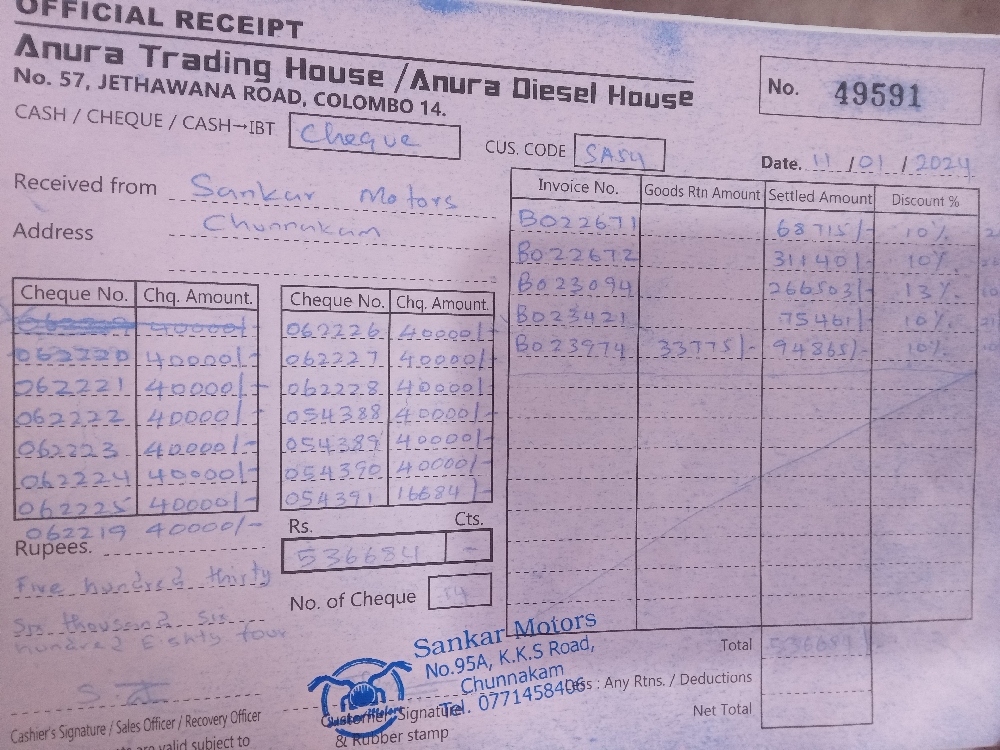 OFFICIAL RECEIPT
Anura Trading House / Anura Diesel House
No. 57, JETHAWANA ROAD, COLOMBO 14.
No. 49591
CASH / CHEQUE / CASH→IBT Cheque
CUS. CODE SA54
Date. 11 / 01 / 2024
Received from Sankar Motors
Address Chunnakam
Invoice No. Goods Rtn Amount Settled Amount Discount %
B022671 68715/- 10%
B022672 311401/- 10%
B023094 266503/- 13%
B023421 75461/- 10%
B023974 33775/- 94865/- 10%
Cheque No. Chq. Amount. Cheque No. Chq. Amount.
40000/- 062226 40000/-
062220 40000/- 062227 40000/-
062221 40000/- 062228 40000/-
062222 40000/- 054388 40000/-
062223 40000/- 054389 40000/-
062224 40000/- 054390 40000/-
062225 40000/- 054391 16684/-
062219 40000/-
Rs. Cts.
536684 -
Rupees.
Five hundred thirty
Six thousand six
hundred Eighty four
No. of Cheque 14
Sankar Motors
No.95A, K.K.S Road,
Chunnakam
Tel. 0771458406
Total 536684/-
Less : Any Rtns. / Deductions
Net Total
Cashier's Signature / Sales Officer / Recovery Officer
Customer Signature
& Rubber stamp
are valid subject to